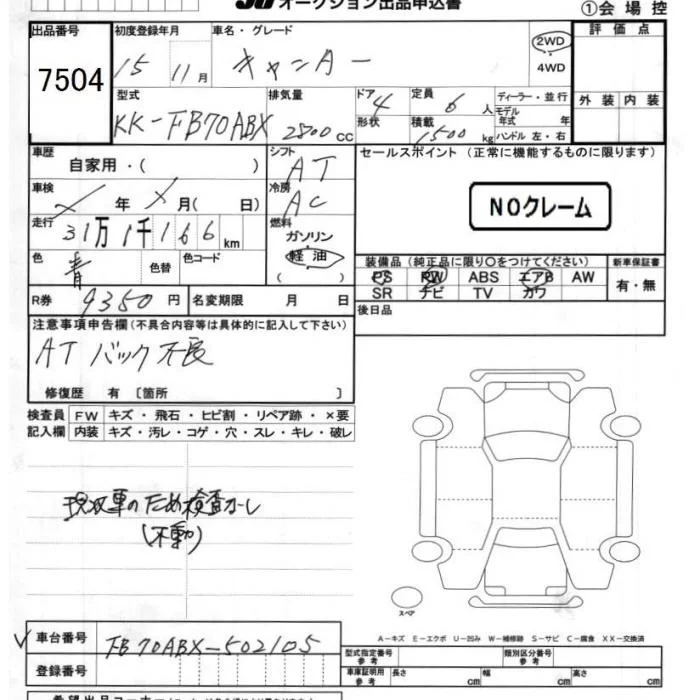 オークション出品申込書
①会場控
出品番号 初度登録年月 車名・グレード 2WD 評価点
7504 15 11月 キャンター 4WD
型式 排気量 ドア 4 定員 6人 ディーラー・並行 外装 内装
KK-FB70ABX 2800CC 形状 積載 1500kg モデル年式 年 ハンドル 左・右
車歴 シフト セールスポイント(正常に機能するものに限ります)
自家用・( ) AT
車検 冷房 NOクレーム
年 月( 日) AC
走行 燃料
31万1千166km ガソリン
色 色替 色コード 軽油 装備品(純正品に限り○をつけてください) 新車保証書
青 ( ) PS PW ABS エアB AW 有・無
R券 9350円 名変期限 月 日 SR ナビ TV カワ
後日品
注意事項申告欄(不具合内容等は具体的に記入して下さい)
ATバック不良
修復歴 有 〔箇所 〕
検査員 FW キズ・飛石・ヒビ割・リペア跡・×要
記入欄 内装 キズ・汚レ・コゲ・穴・スレ・キレ・破レ
現状車のため検査なし
(不動)
スペア
A-キズ E-エクボ U-凹み W-補修跡 S-サビ C-腐食 XX-交換済
車台番号 FB70ABX-502105
型式指定番号 参考 類別区分番号 参考
登録番号
車庫証明用 参考 長さ cm 幅 cm 高さ cm